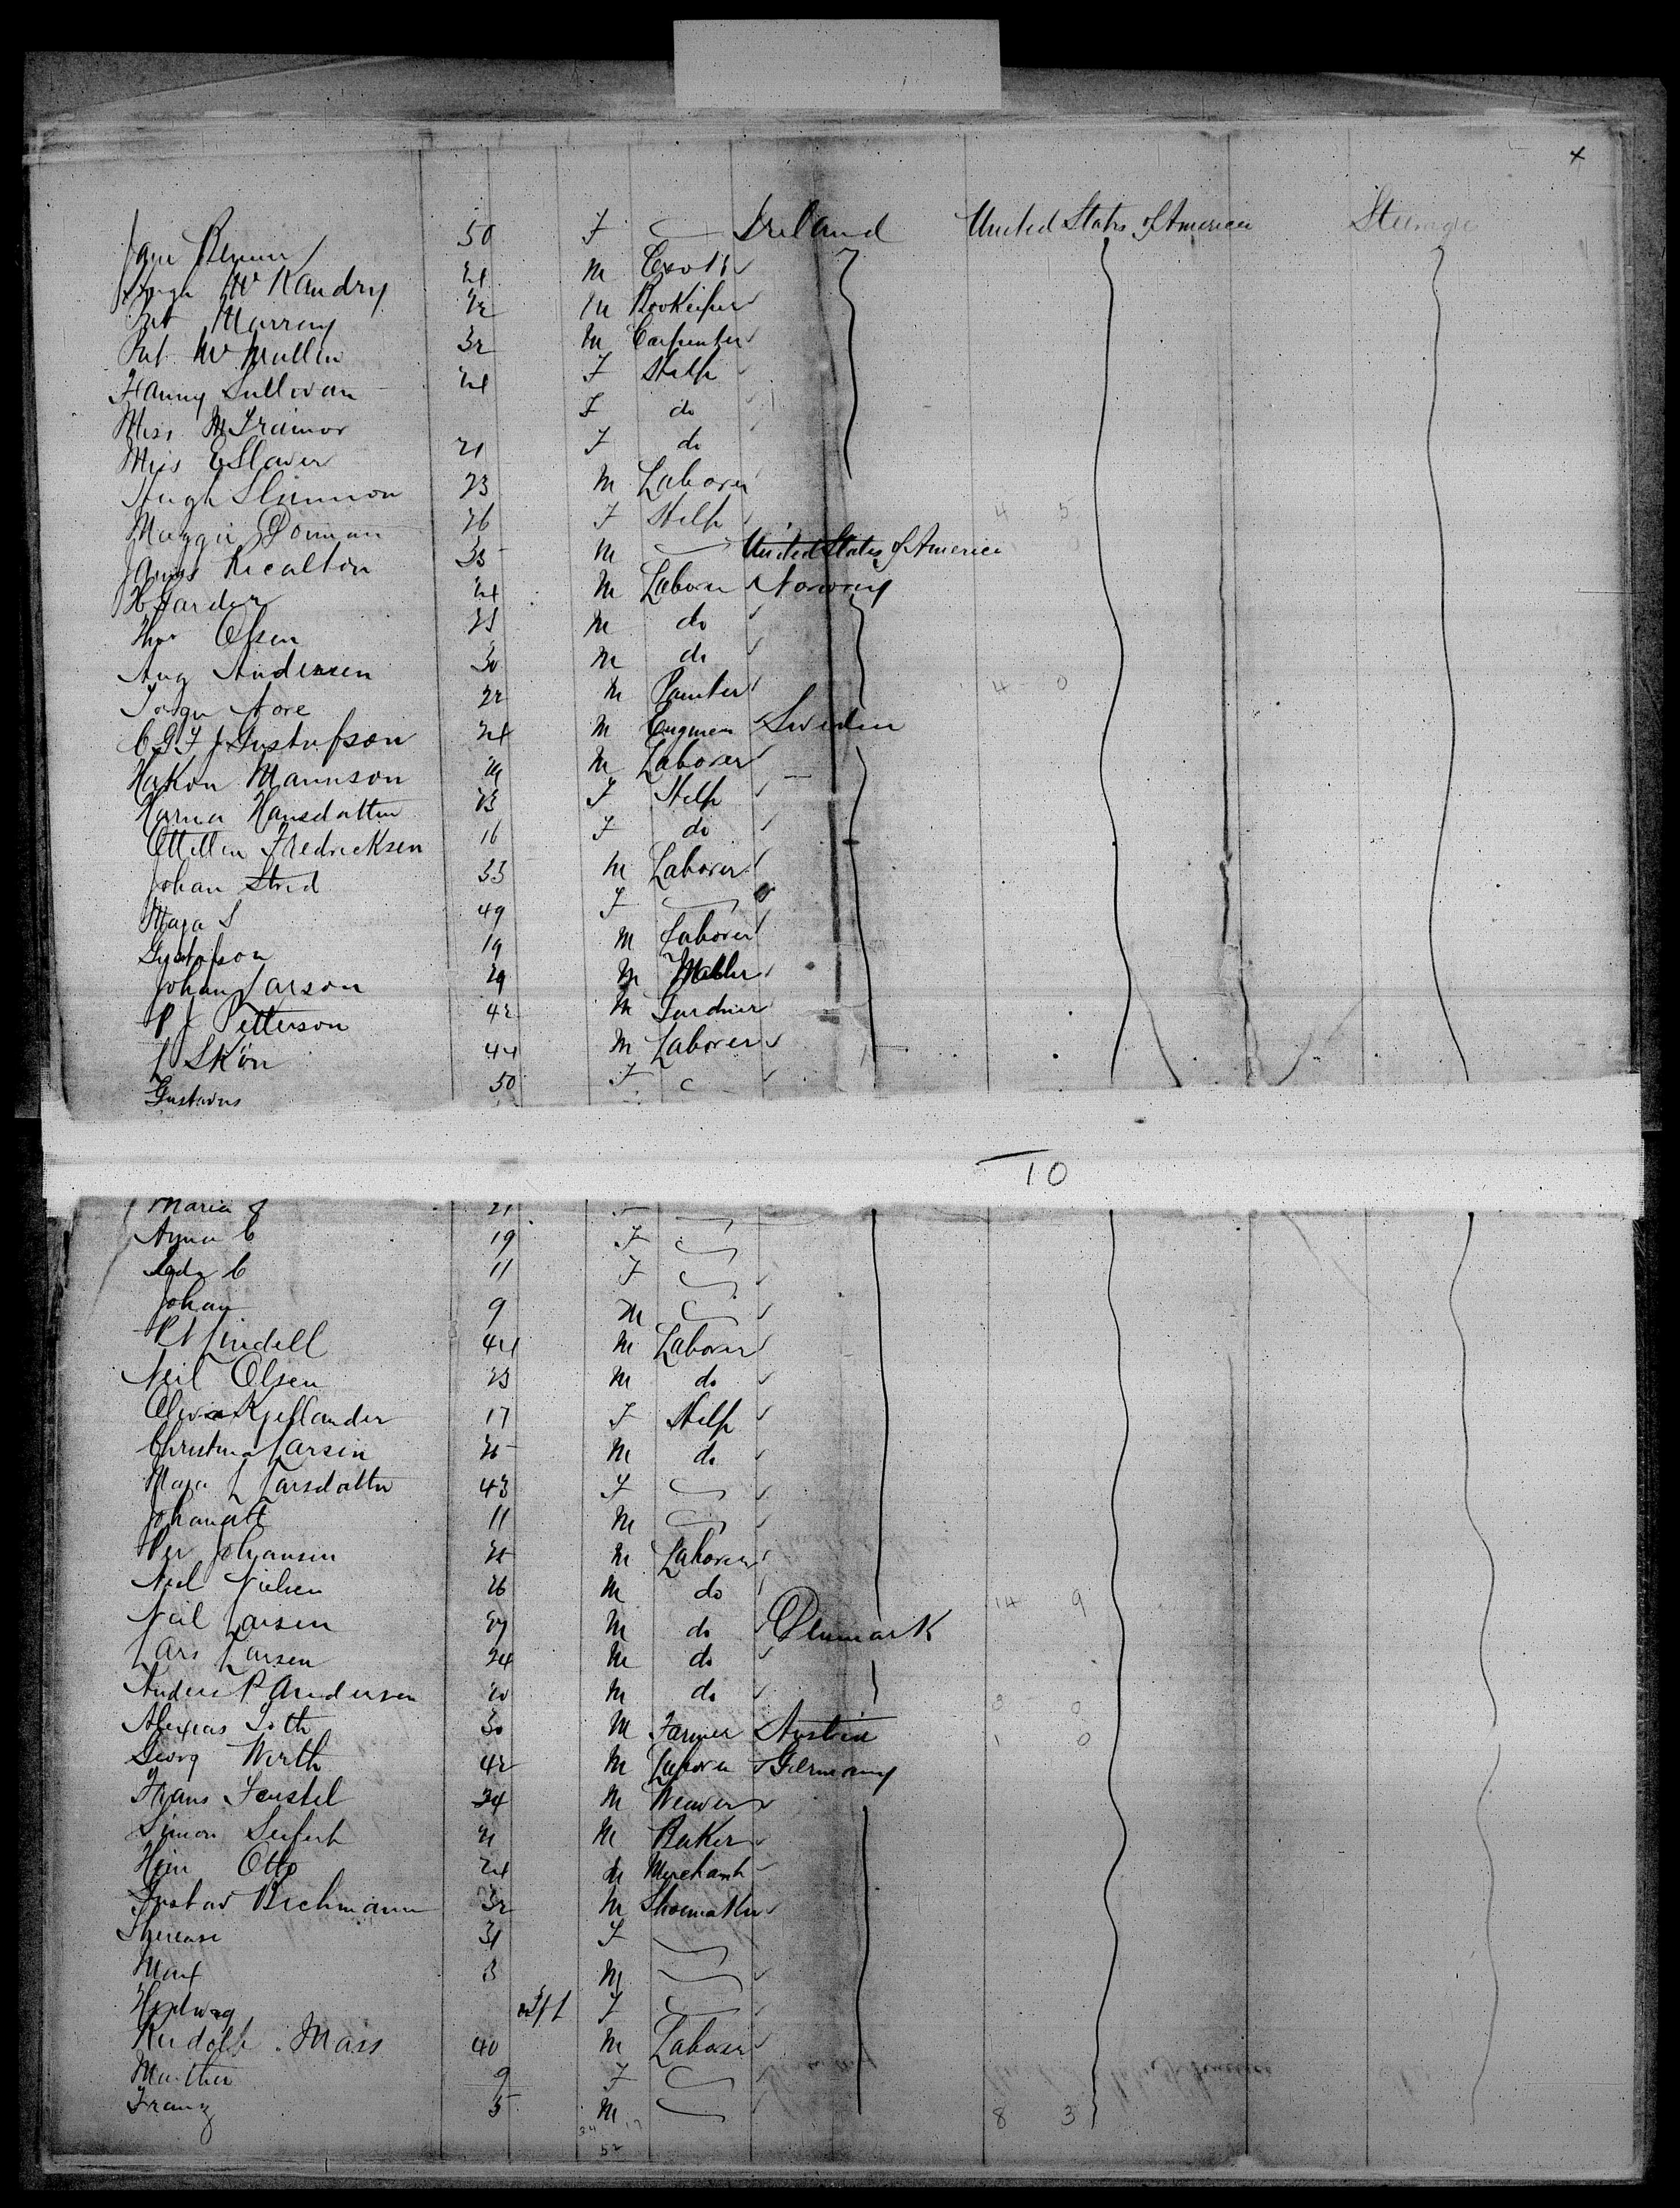 x
50 F Ireland United States of America Steerage
Hugh McKandry 24 M
Pat Murray 22 M Bookeeper
Pat McMullin 32 M Carpenter
Fanny Sullivan 24 F Help
Miss M Trainor F do
Miss E Slaver 21 F do
Hugh Shannon 23 M Laborer
Maggie Dornan 26 F Help 4 5
James Ricalton 35 M United States of America
H Garder 24 M Laborer Norway
Thor Olsen 25 M do
Aug Andersen 30 M do
Nore 22 M Painter 4 0
C G F J Gustafson 24 M Sweden
Hakon Mannson M Laborer
Karna Hansdatter 23 F Help
Ottillia Fredricksen 16 F do
Johan Strid 33 M Laborer
Maja S 49 F
Gustafson 19 M Laborer
Johan Larson 29 M
P J Petterson 42 M Gardner
Skön 44 M Laborer
Gustavus 50 F
10
Maria 21
Anna C 19 F
C 11 F
Johan 9 M
Lindell 44 M Laborer
Neil Olsen 23 M do
Oliva Kjellander 17 F Help
Christina Larsen 25 M do
Maja L Larsdatter 43 F
Johan 11 M
Per Johansen 25 M Laborer
Neil Nielsen 26 M do 14 9
Neil Larsen 27 M do Denmark
Lars Larsen 24 M do
Anders P Andersen 20 M do 3 0
30 M Farmer Austria 1 0
Georg Wirth 42 M Laborer Germany
Feustel 34 M Weaver
Simon Seifert 21 M Baker
Hein Otto 24 M Merchant
Gustav Bichmann 32 M Shoemaker
Therease 31 F
Max 3 M
Hedwag F
Rudolf Mass 40 M Laborer
Marther 9 F
Franz 5 M 8 3
34 17
52